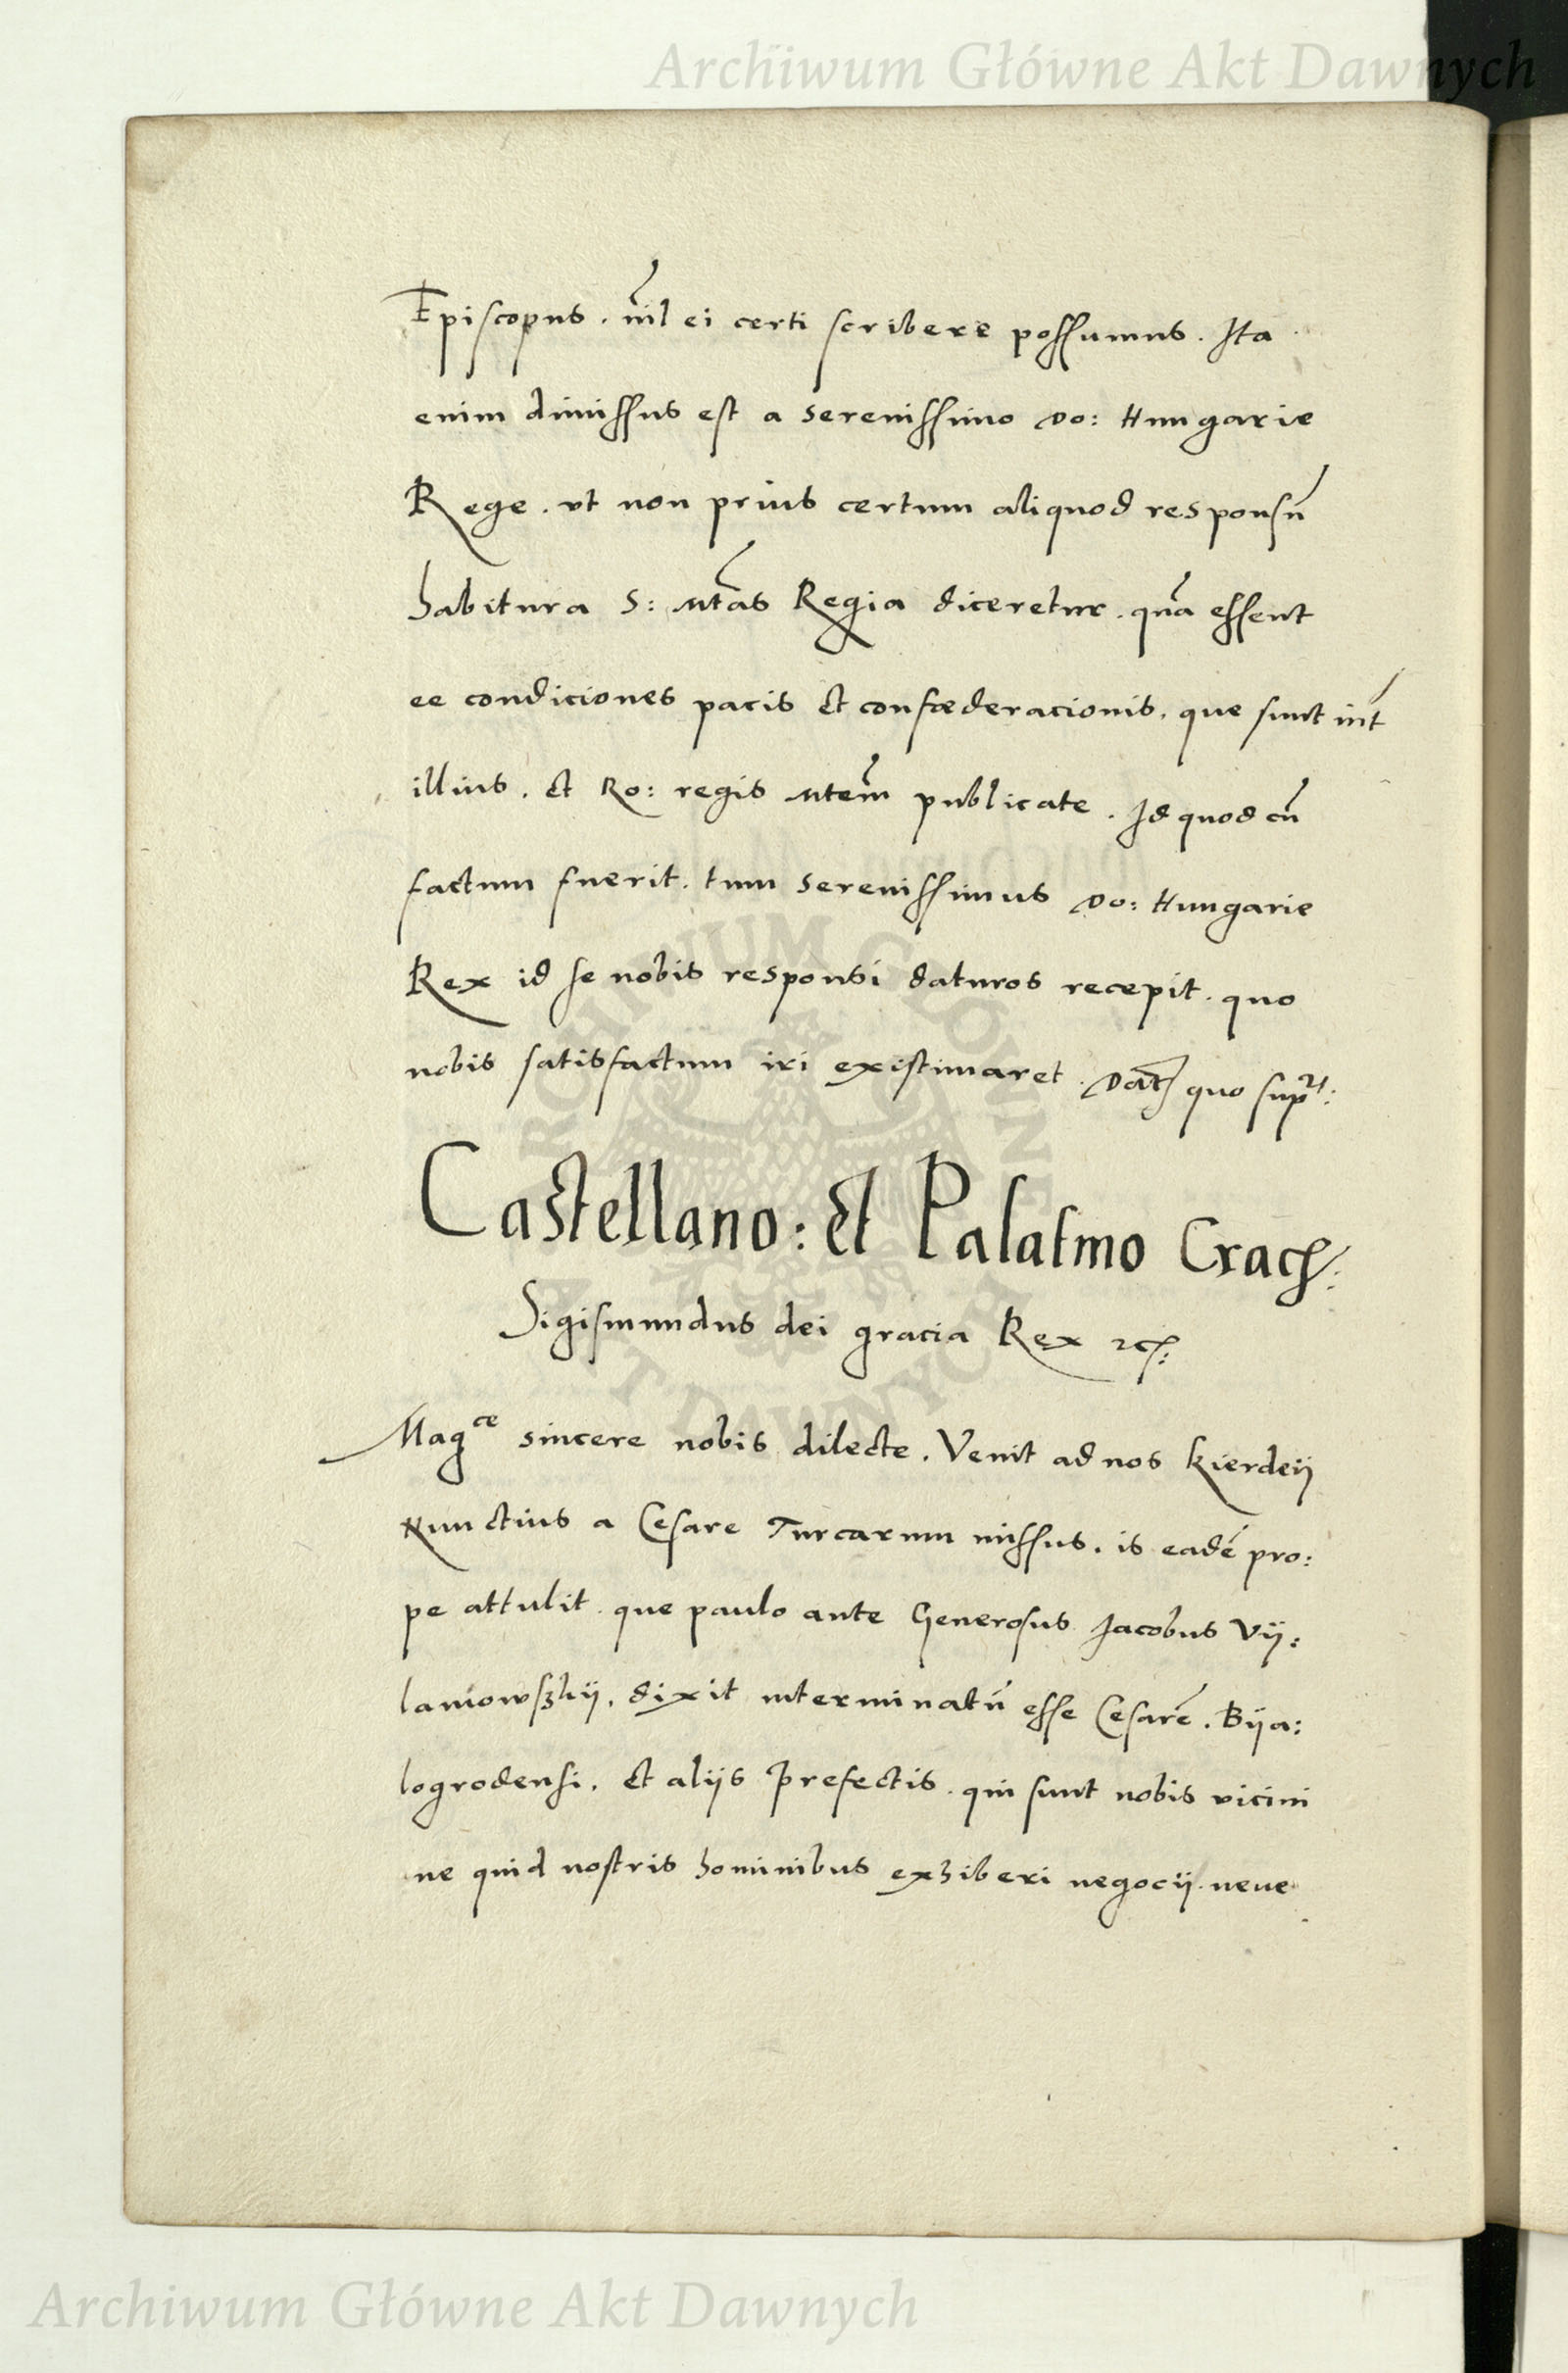 Archiwum Główne Akt Dawnych
Episcopus. nil ei certi scribere possumus. Ita
enim dimissus est a Serenissimo Do: Hungarie
Rege. ut non prius certum aliquod responsū
habitura S: Mtas Regia diceretur. quā essent
ee condiciones pacis et confœderacionis. que sunt int
illius. et Ro: regis Mtem publicate. Id quod cū
factum fuerit. tum Serenissimus Do: Hungarie
Rex id se nobis responsi daturos recepit. quo
nobis satisfactum iri existimaret. Dat quo supra:
Castellano: et Palatino Crac:
Sigismundus dei gracia Rex etc:
Magce sincere nobis dilecte. Venit ad nos Kierdeij
Nunctius a Cesare Turcarum missus. is eadē pro:
pe attulit. que paulo ante Generosus Jacobus Vij:
lamowszkij. dixit interminatū esse Cesarē. Bija:
logrodensi. et alijs Prefectis. qui sunt nobis vicini
ne quid nostris hominibus exhiberi negocij. neue
ARCHIWUM GŁÓWNE
AKT DAWNYCH
Archiwum Główne Akt Dawnych